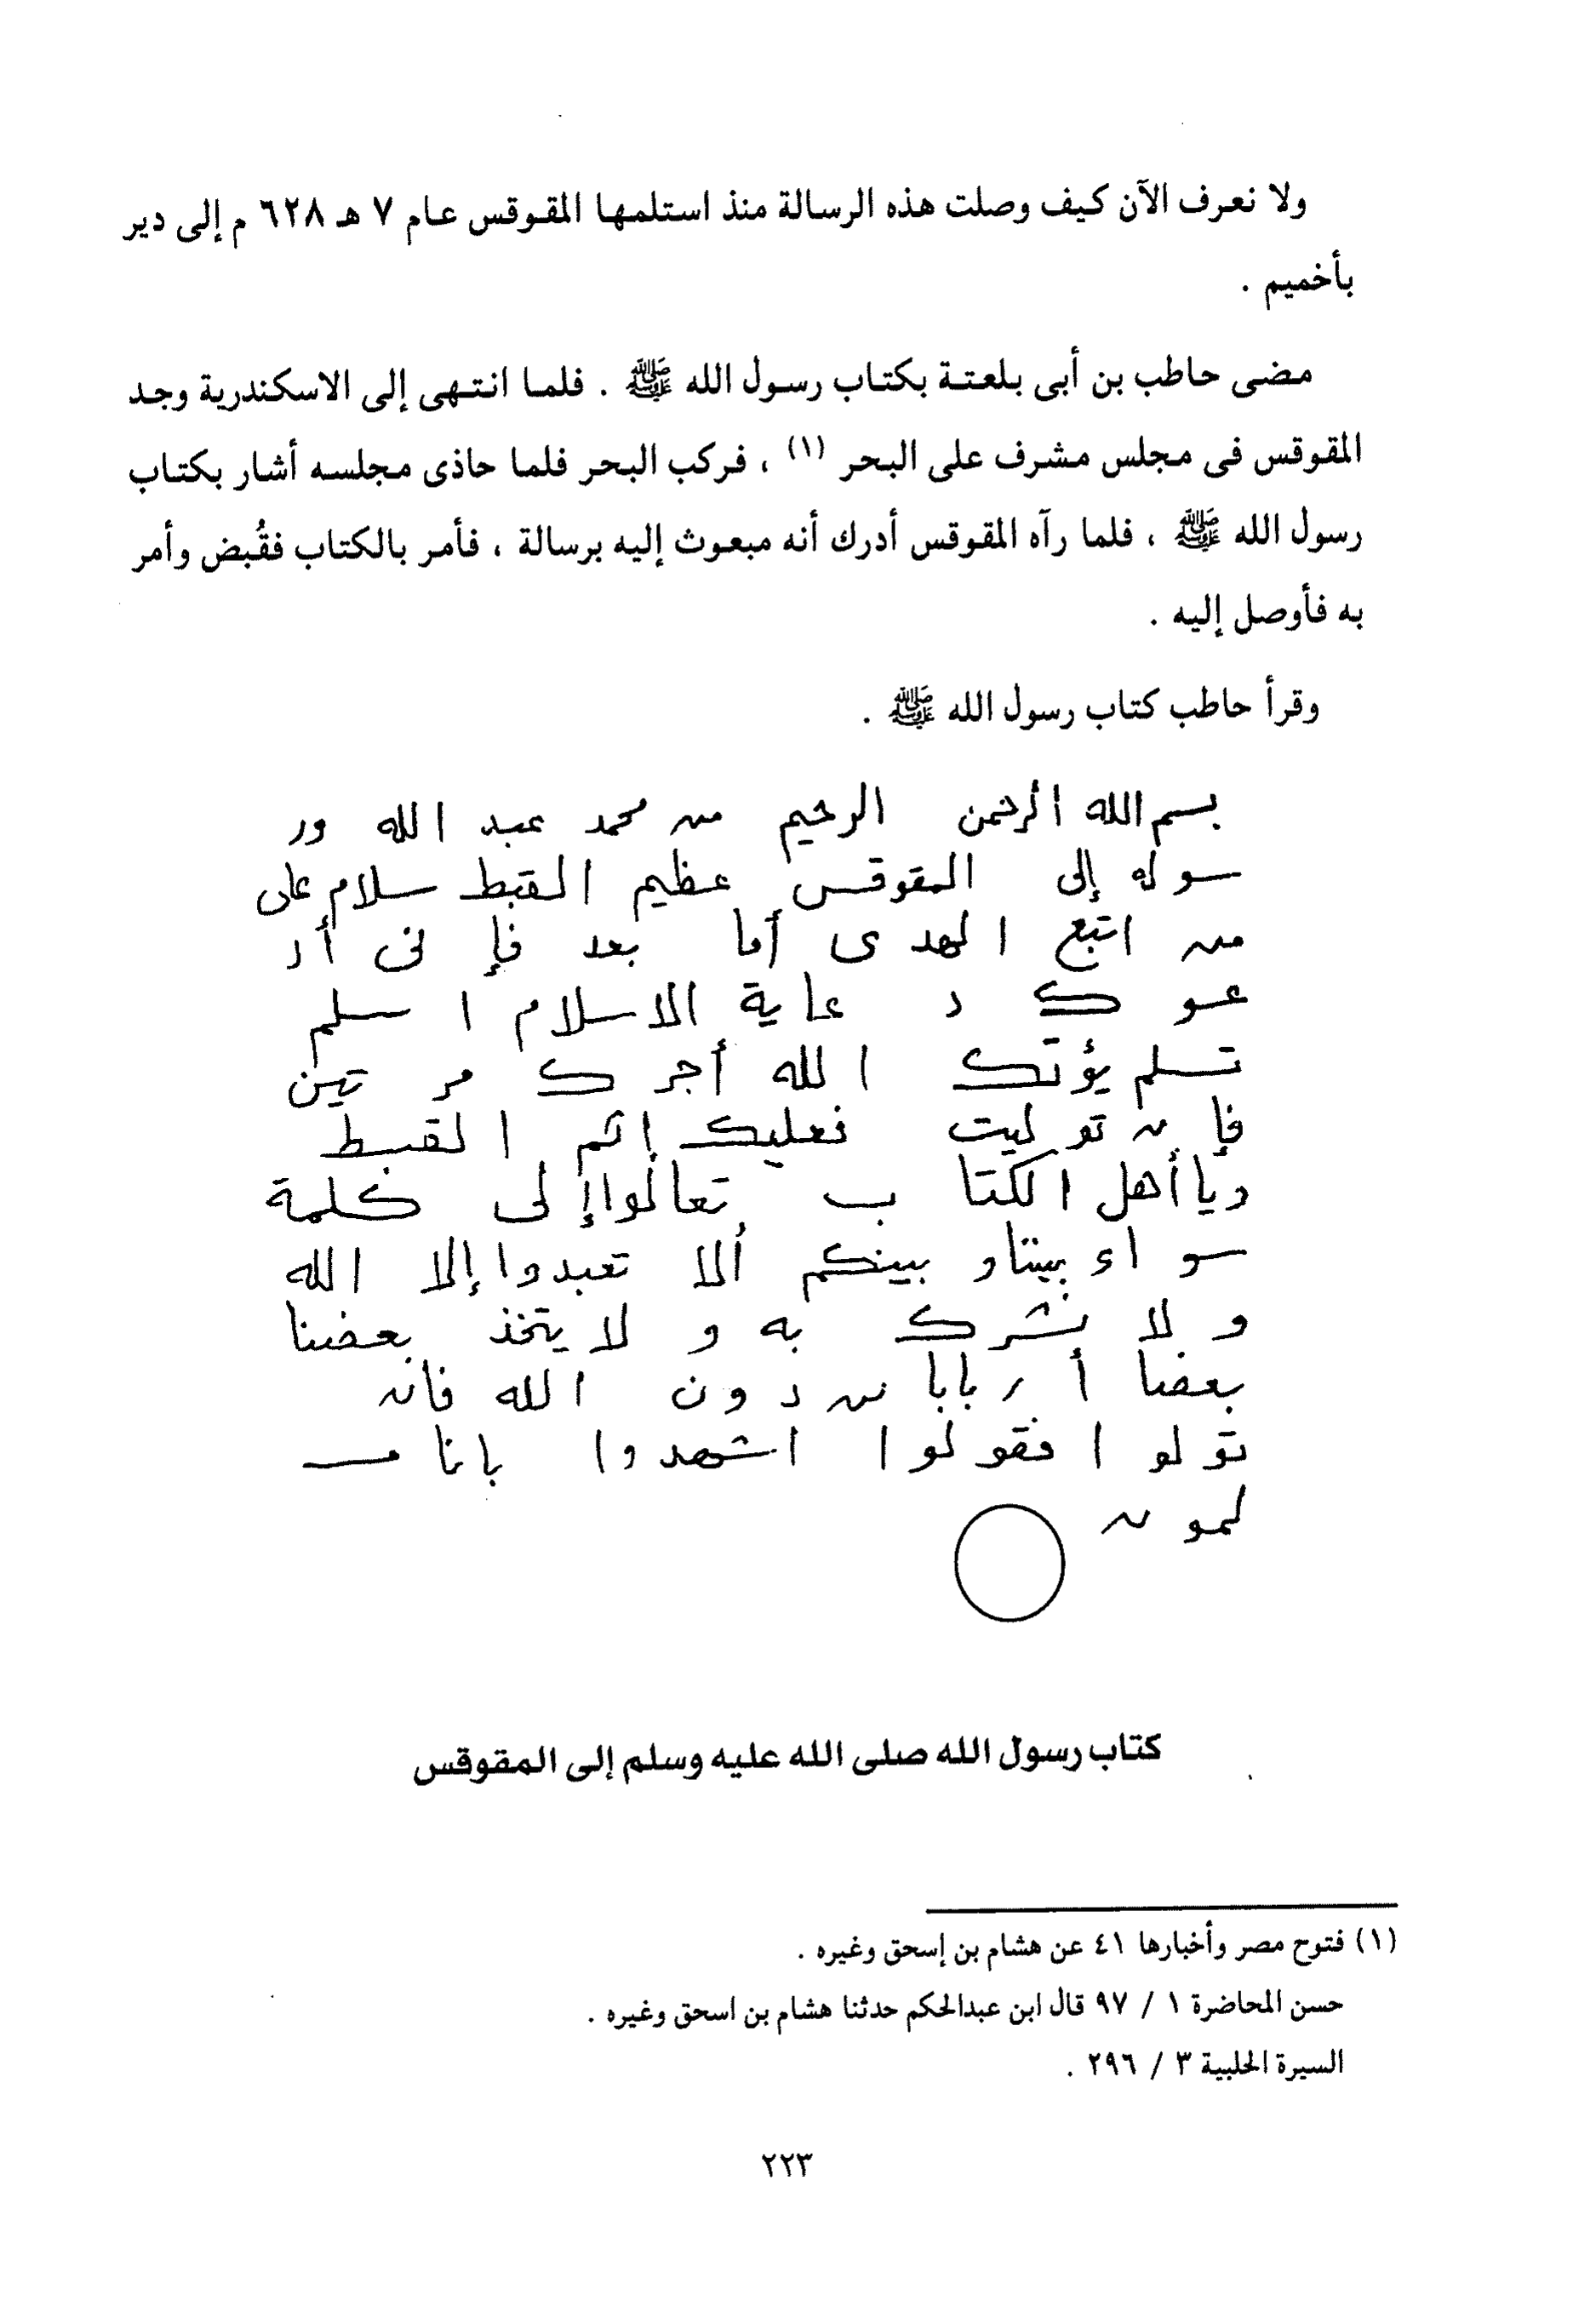 ولا نعرف الآن كيف وصلت هذه الرسالة منذ استلمها المقوقس عام ٧ هـ ٦٢٨ م إلى دير
بأخميم .
مضى حاطب بن أبى بلعتة بكتاب رسول الله ﷺ . فلما انتهى إلى الاسكندرية وجد
المقوقس فى مجلس مشرف على البحر (١) ، فركب البحر فلما حاذى مجلسه أشار بكتاب
رسول الله ﷺ ، فلما رآه المقوقس أدرك أنه مبعوث إليه برسالة ، فأمر بالكتاب فقُبض وأمر
به فأوصل إليه .
وقرأ حاطب كتاب رسول الله ﷺ .
بسم الله الرحمن الرحيم من محمد عبد الله ور
سوله إلى المقوقس عظيم القبط سلام على
من اتبع الهدى أما بعد فإ نى أد
عو ك د عا ية الاسلام ا سلم
تسلم يؤتك الله أجر ك مر تين
فإ ن تو ليت فعليك إثم القبط
ويا أهل الكتا ب تعالوا إلى كلمة
سو اء بيننا و بينكم ألا نعبدوا إلا الله
و لا نشرك به و لا يتخذ بعضنا
بعضا أ ربابا من د ون الله فان
تو لو ا فقو لو ا اشهد وا بانا مس
لمو ن
كتاب رسول الله صلى الله عليه وسلم إلى المقوقس
(١) فتوح مصر وأخبارها ٤١ عن هشام بن إسحق وغيره .
حسن المحاضرة ١ / ٩٧ قال ابن عبدالحكم حدثنا هشام بن اسحق وغيره .
السيرة الحلبية ٣ / ٢٩٦ .
٢٢٣